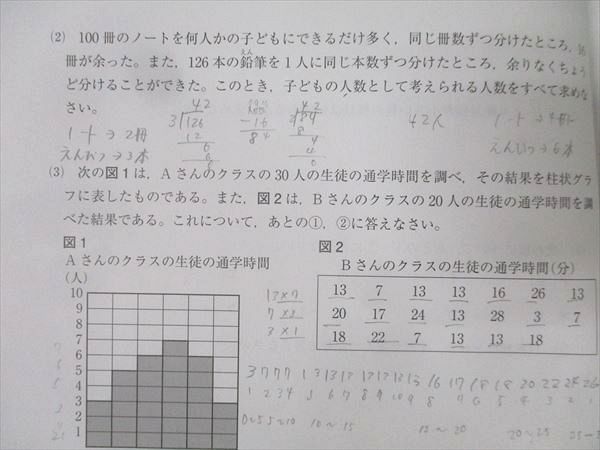 (2) 100冊のノートを何人かの子どもにできるだけ多く，同じ冊数ずつ分けたところ，16
冊が余った。また，126本の鉛筆を1人に同じ本数ずつ分けたところ，余りなくちょう
ど分けることができた。このとき，子どもの人数として考えられる人数をすべて求めな
さい。
42
3)126
12
6
6
0
100
-16
84
42
2)84
8
4
4
0
42人
ノート→2冊
えんぴつ→3本
ノート→4冊
えんぴつ→6本
(3) 次の図1は，Aさんのクラスの30人の生徒の通学時間を調べ，その結果を柱状グラ
フに表したものである。また，図2は，Bさんのクラスの20人の生徒の通学時間を調
べた結果である。これについて，あとの①，②に答えなさい。
図1
Aさんのクラスの生徒の通学時間
(人)
10
9
8
7
6
5
4
3
2
1
図2
Bさんのクラスの生徒の通学時間(分)
13 7 13 13 16 26 13
20 17 24 13 28 3 7
18 22 7 13 13 18
13×7
7×3
3×1
3 7 7 7 13 13 13 13 13 13 13 16 17 18 18 20 22 24 26
0~5 5~10 10~15
20~25